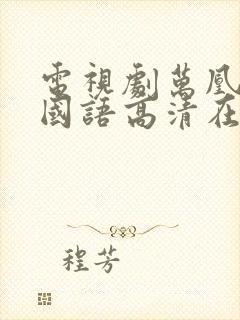 電視劇萬凰
國語高清在
程芳